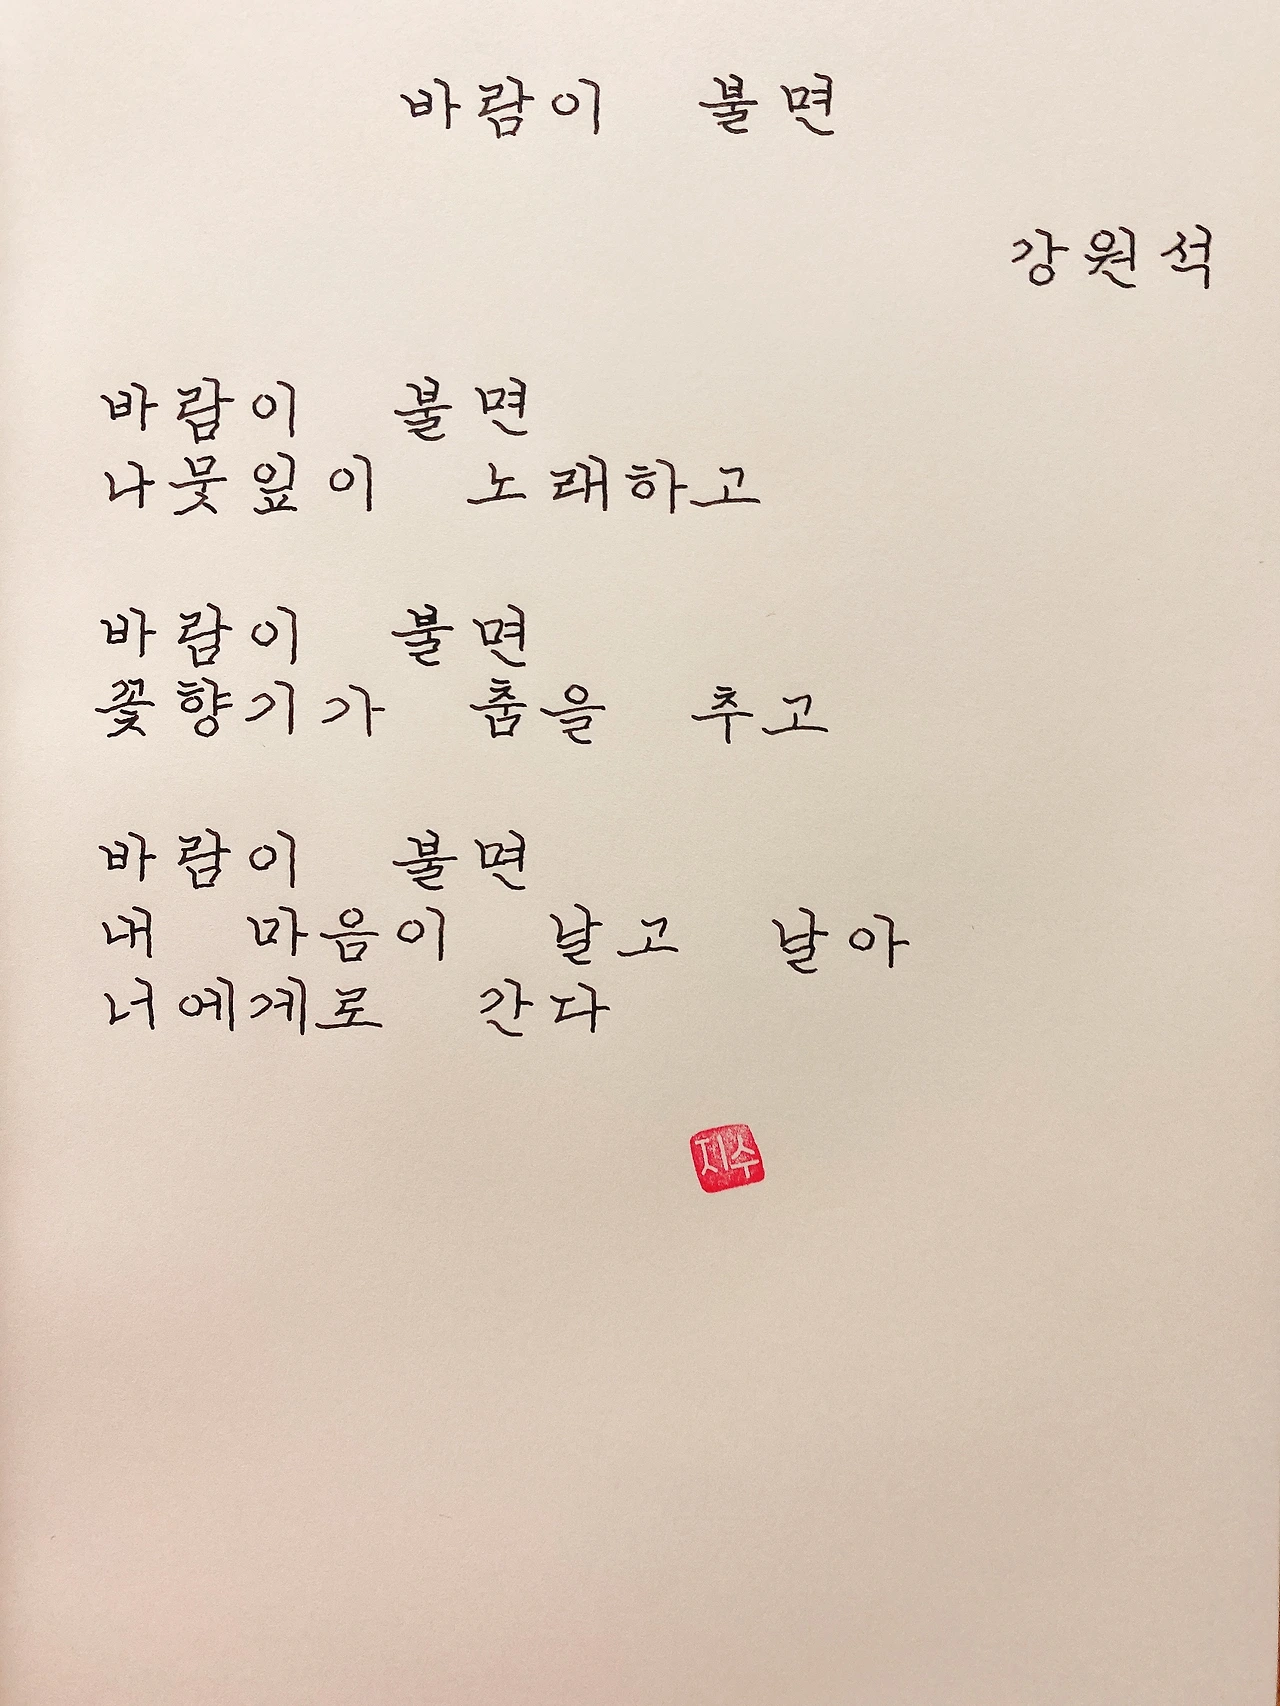 바람이 불면
강원석
바람이 불면
나뭇잎이 노래하고
바람이 불면
꽃향기가 춤을 추고
바람이 불면
내 마음이 날고 날아
너에게로 간다
지수